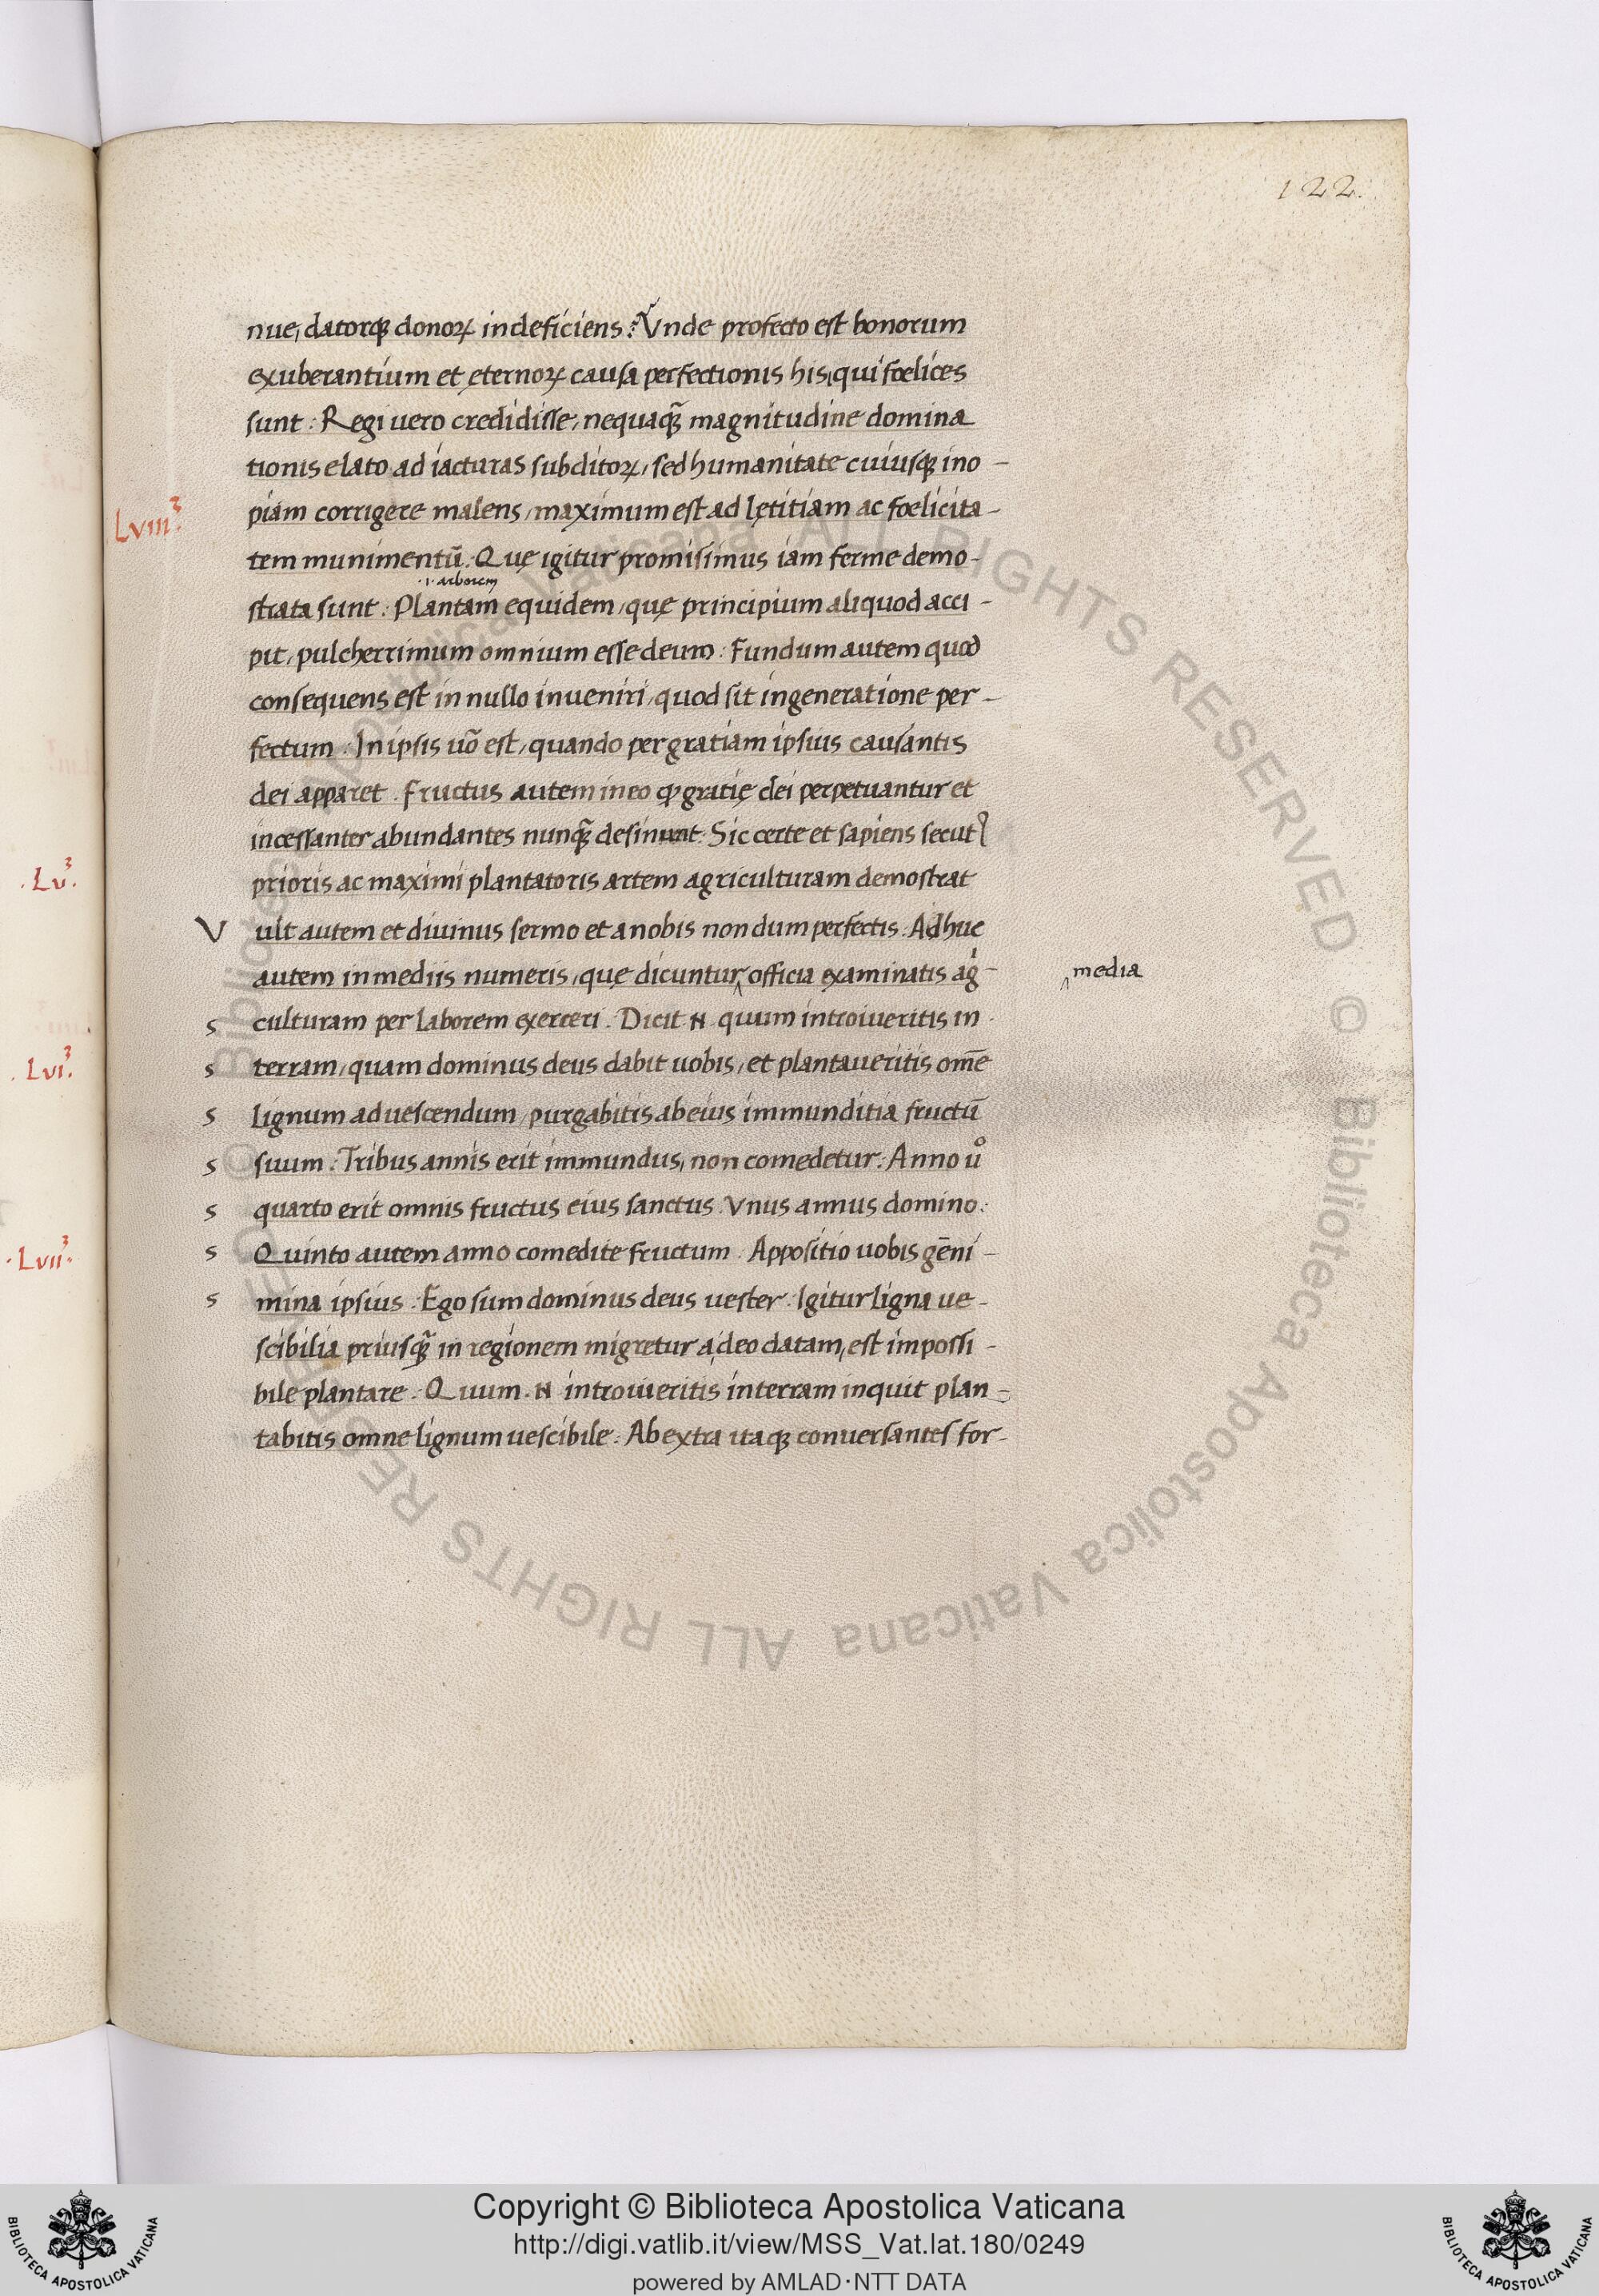 122.
nue, datorq; donoꝝ indeficiens: Vnde profecto est bonorum
exuberantium et ęternoꝝ causa perfectionis his, qui fœlices
sunt: Regi uero credidisse, nequaq̃ magnitudine domina
tionis elato ad iacturas subditoꝝ, sed humanitate cuiusq; ino-
Lviii.
piam corrigere malens, maximum est ad lętitiam ac fœlicita-
tem munimentũ. Quę igitur promisimus iam ferme demo-
.i. arborem
strata sunt: Plantam equidem, quę principium aliquod acci-
pit, pulcherrimum omnium esse deum: Fundum autem quod
consequens est in nullo inueniri, quod sit in generatione per-
fectum: In ipsis uõ est, quando per gratiam ipsius causantis
dei apparet. Fructus autem in eo ꝙ gratię dei perpetuantur et
incessanter abundantes nunq̃ desinunt. Sic certe et sapiens secut
.Lv.
prioris ac maximi plantatoris artem agriculturam demostrat
Vult autem et diuinus sermo et a nobis nondum perfectis. Adhuc
autem in mediis numeris, quę dicuntur officia examinatis ag-
media
s culturam per laborem exerceri. Dicit .N. quum introiueritis in
s terram, quam dominus deus dabit uobis, et plantaueritis om̃e
.Lvi.
s lignum ad uescendum, purgabitis ab eius immunditia fructũ
s suum: Tribus annis erit immundus, non comedetur: Anno uº
s quarto erit omnis fructus eius sanctus. Vnus annus domino:
s Quinto autem anno comedite fructum. Appositio uobis gẽni-
.Lvii.
s mina ipsius: Ego sum dominus deus uester. Igitur ligna ue-
scibilia priusq̃ in regionem migretur a deo datam, est impossi-
bile plantare. Quum .N. introiueritis in terram inquit plan-
tabitis omne lignum uescibile: Ab extra itaq; conuersantes for-
© Biblioteca Apostolica Vaticana ALL RIGHTS RESERVED © Biblioteca Apostolica Vaticana ALL RIGHTS RESERVED
Copyright © Biblioteca Apostolica Vaticana
http://digi.vatlib.it/view/MSS_Vat.lat.180/0249
powered by AMLAD·NTT DATA
BIBLIOTECA APOSTOLICA VATICANA
BIBLIOTECA APOSTOLICA VATICANA